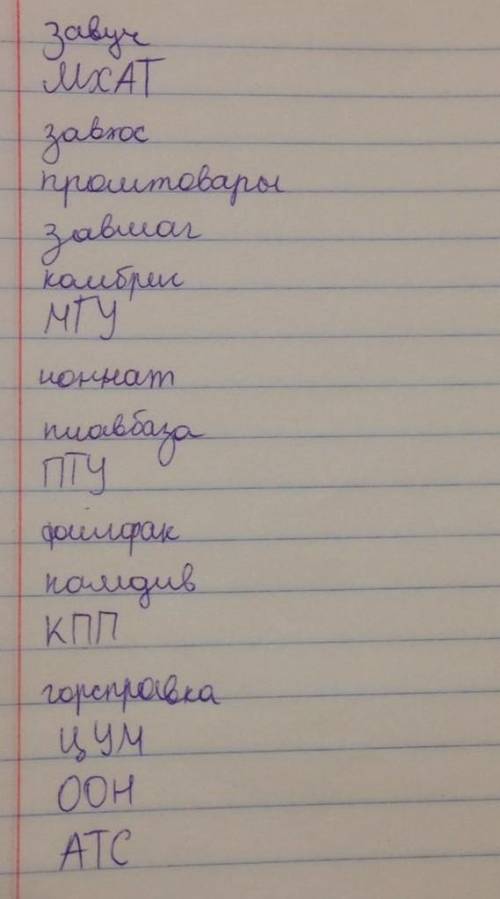 завуч
МХАТ
завхос
промтовары
завмаг
камбриг
МГУ
юннат
плавбаза
ПТУ
филфак
камдив
КПП
горсправка
ЦУМ
ООН
АТС